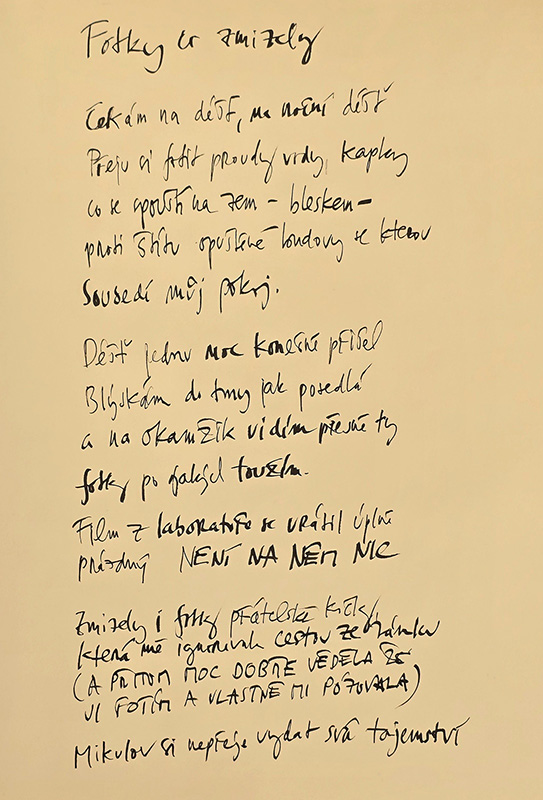 Fotky co zmizely
Čekám na déšť, na noční déšť
Přeju si fotit proudy vody, kapky
co se spouští na zem – bleskem –
proti štítu opuštěné budovy se kterou
sousedí můj pokoj.
Déšť jednu noc konečně přišel
Blýskám do tmy jak posedlá
a na okamžik vidím přesně ty
fotky po jakých toužím.
Film z laboratoře se vrátil úplně
prázdný NENÍ NA NĚM NIC
Zmizely i fotky přátelské kočky,
která mě ignorovala cestou ze zámku
(A PŘITOM MOC DOBŘE VĚDĚLA ŽE
JI FOTÍM A VLASTNĚ MI PÓZOVALA)
Mikulov si nepřeje vydat svá tajemství